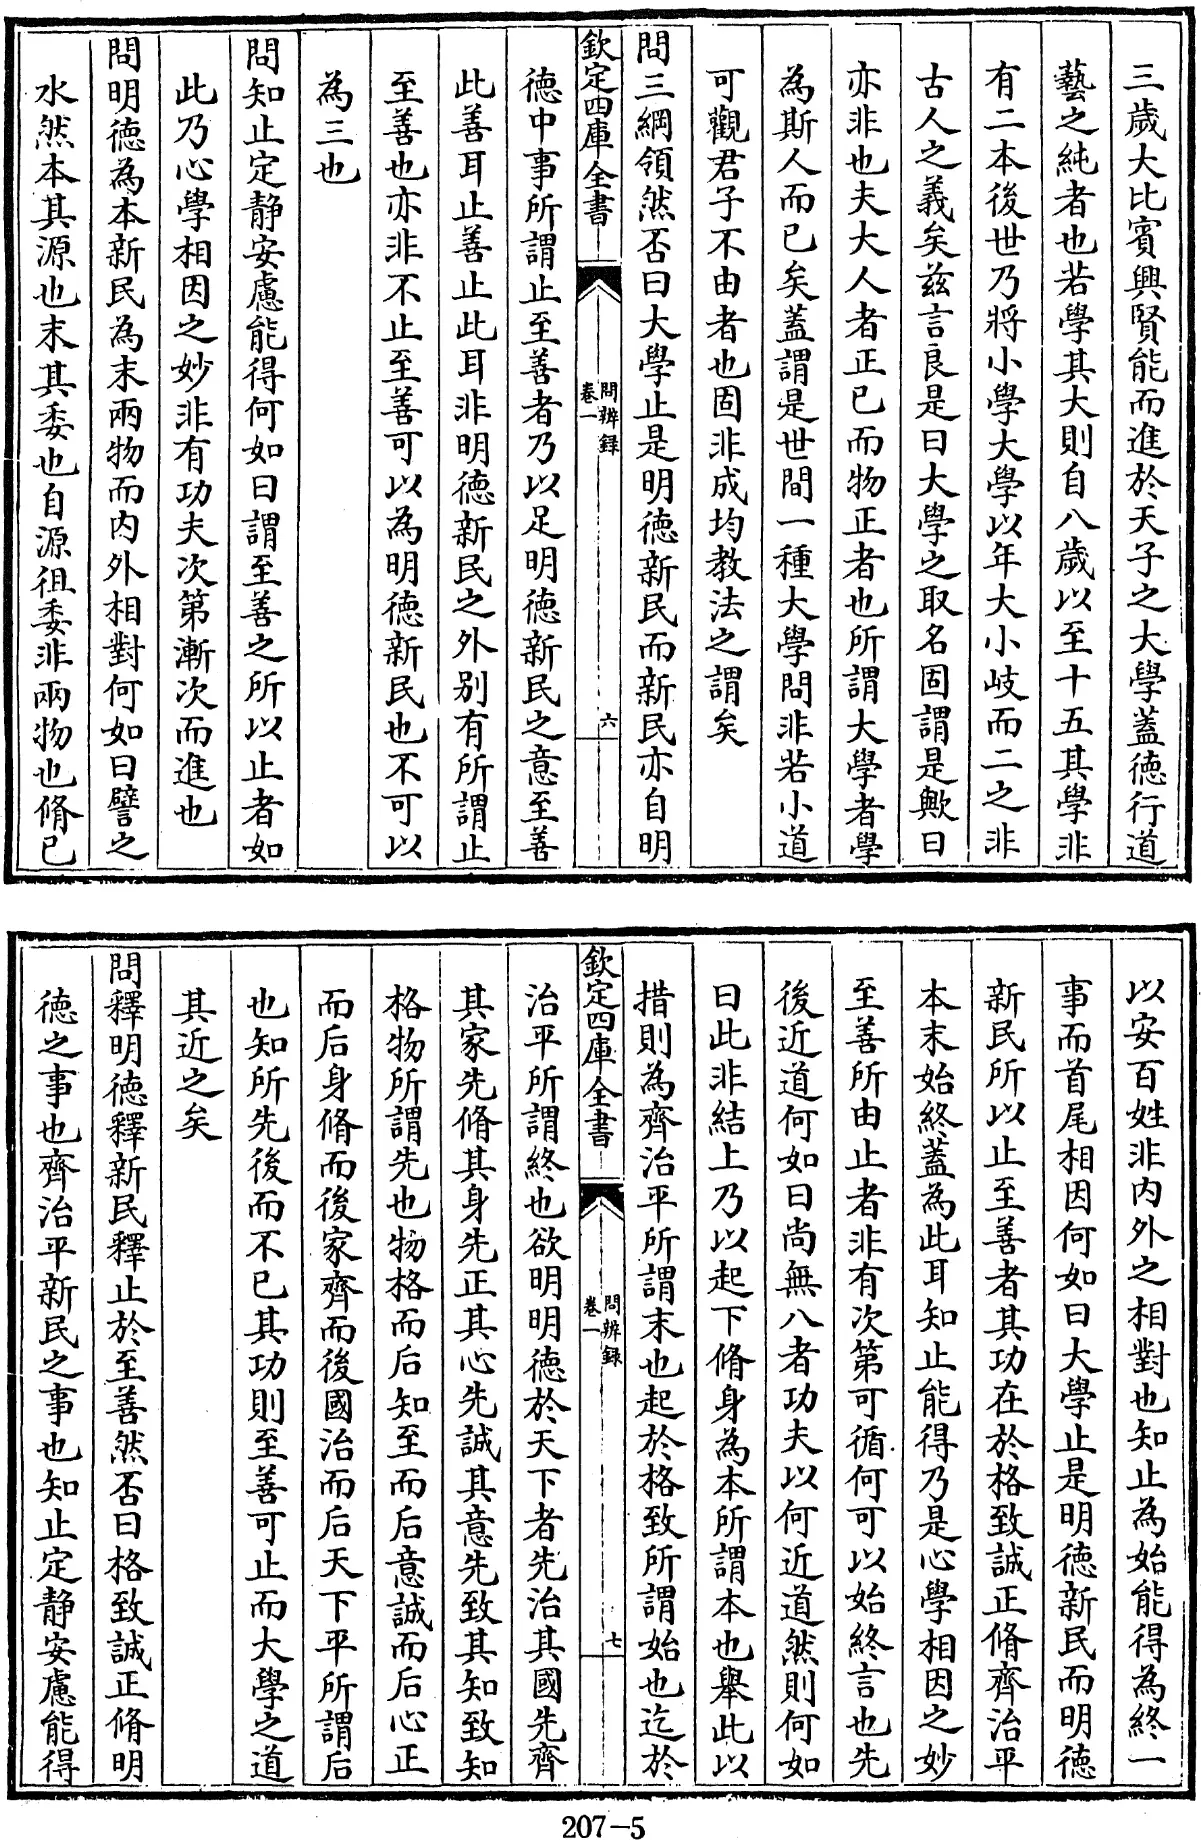 三歲大比賓興賢能而進於天子之大學蓋德行道
藝之純者也若學其大則自八歲以至十五其學非
有二本後世乃將小學大學以年大小岐而二之非
古人之義矣兹言良是曰大學之取名固謂是歟曰
亦非也夫大人者正已而物正者也所謂大學者學
為斯人而已矣蓋謂是世間一種大學問非若小道
可觀君子不由者也固非成均教法之謂矣
問三綱領然否曰大學止是明德新民而新民亦自明
欽定四庫全書
問辨録
卷一
六
德中事所謂止至善者乃以足明德新民之意至善
此善耳止善止此耳非明德新民之外别有所謂止
至善也亦非不止至善可以為明德新民也不可以
為三也
問知止定静安慮能得何如曰謂至善之所以止者如
此乃心學相因之妙非有功夫次第漸次而進也
問明德為本新民為末兩物而内外相對何如曰譬之
水然本其源也末其委也自源徂委非兩物也脩已
以安百姓非内外之相對也知止為始能得為終一
事而首尾相因何如曰大學止是明德新民而明德
新民所以止至善者其功在於格致誠正脩齊治平
本末始終蓋為此耳知止能得乃是心學相因之妙
至善所由止者非有次第可循何可以始終言也先
後近道何如曰尚無八者功夫以何近道然則何如
曰此非結上乃以起下脩身為本所謂本也舉此以
措則為齊治平所謂末也起於格致所謂始也迄於
欽定四庫全書
問辨録
卷一
七
治平所謂終也欲明明德於天下者先治其國先齊
其家先脩其身先正其心先誠其意先致其知致知
格物所謂先也物格而后知至而后意誠而后心正
而后身脩而後家齊而後國治而后天下平所謂后
也知所先後而不已其功則至善可止而大學之道
其近之矣
問釋明德釋新民釋止於至善然否曰格致誠正脩明
德之事也齊治平新民之事也知止定静安慮能得
207-5